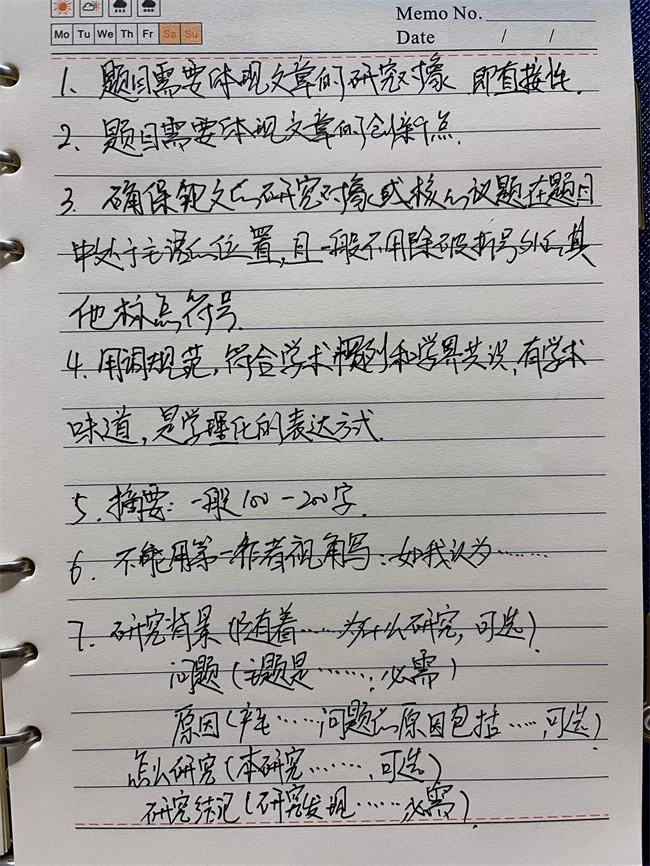 Memo No.
Mo Tu We Th Fr Sa Su
Date / /
1. 题目需要体现文章的研究对象 即直接性.
2. 题目需要体现文章的创新点.
3. 确保论文的研究对象或核心议题在题目
中处于主语的位置,且一般不用除破折号外的其
他标点符号.
4. 用词规范,符合学术惯例和学界共识,有学术
味道,是学理化的表达方式.
5. 摘要:一般100-200字.
6. 不能用第一作者视角写:如我认为……
7. 研究背景(有着……为什么研究,可选)
问题(主题是……,必需)
原因(产生……问题的原因包括……,可选)
怎么研究(本研究……,可选)
研究结论(研究发现……必需).